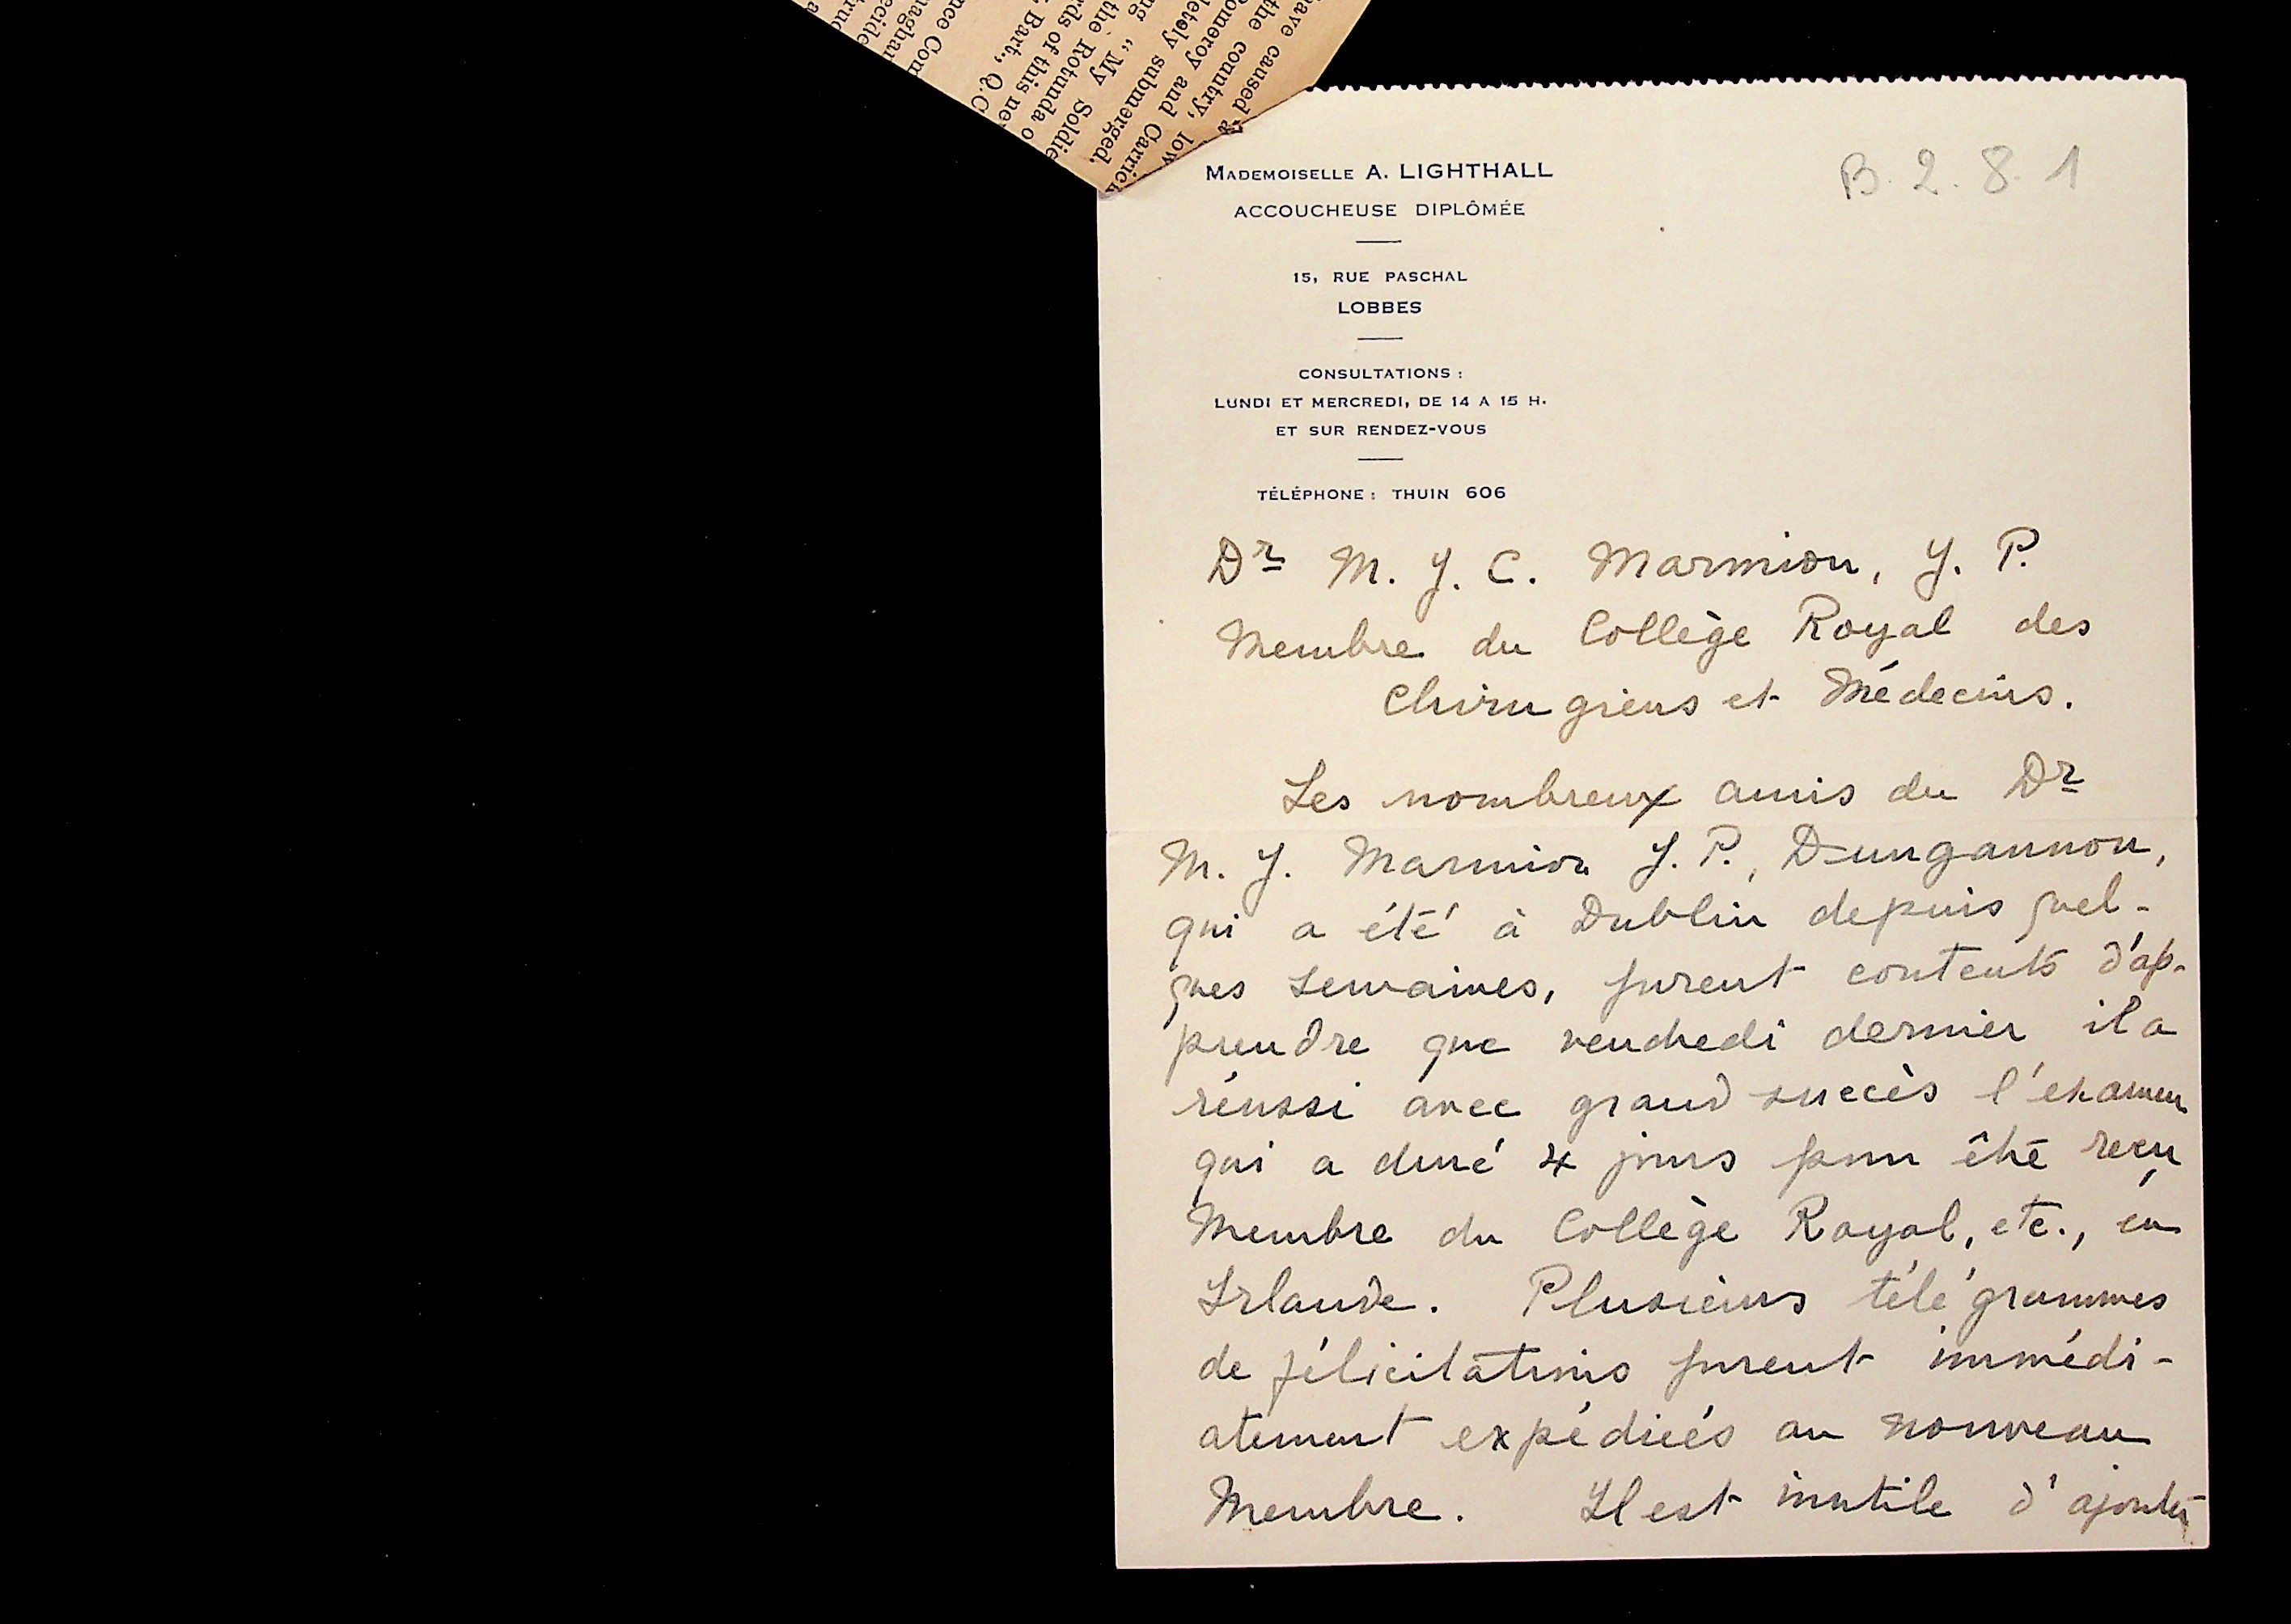 have caused a
the country, low
omeroy and Carrick
letely submerged.
ng "My Soldie
the Rotunda o
rds of this ne
Bart., Q.C
nce Con
naghan
ecide
MADEMOISELLE A. LIGHTHALL
ACCOUCHEUSE DIPLÔMÉE
15, RUE PASCHAL
LOBBES
CONSULTATIONS :
LUNDI ET MERCREDI, DE 14 A 15 H.
ET SUR RENDEZ-VOUS
TÉLÉPHONE : THUIN 606
B. 2. 8. 1
Dr M. J. C. Marmion, J. P.
Membre du Collège Royal des
Chirurgiens et Médecins.
Les nombreux amis du Dr
M. J. Marmion J. P., Dungannon,
qui a été à Dublin depuis quel-
ques semaines, furent contents d'ap-
prendre que vendredi dernier il a
réussi avec grand succès l'examen
qui a duré 4 jours pour être reçu
Membre du Collège Royal, etc., en
Irlande. Plusieurs télégrammes
de félicitations furent immédi-
atement expédiés au nouveau
Membre. Il est inutile d'ajouter